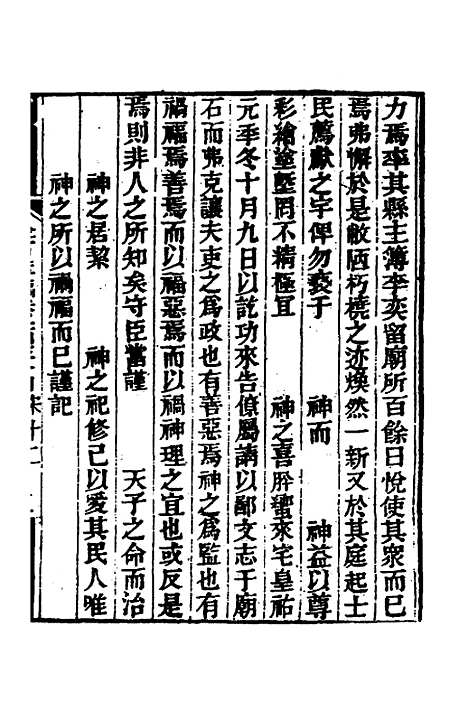 力焉率其縣主簿李奕留廟所百餘日悅使其衆而已
焉弗懈於是敝陋朽橈之迹煥然一新又於其庭起士
民薦獻之宇俾勿褻于　神而　神益以尊
彩繪塗墍罔不精極宜　神之喜肸蠁來宅皇祐
元年冬十月九日以訖功來告僚屬請以鄙文志于廟
石而弗克讓夫吏之為政也有善惡焉神之為監也有
禍福焉善焉而以福惡焉而以禍神理之宜也或反是
焉則非人之所知矣守臣當謹　天子之命而治
神之居絜　神之祀修己以愛其民人唯
神之所以禍福而已謹記